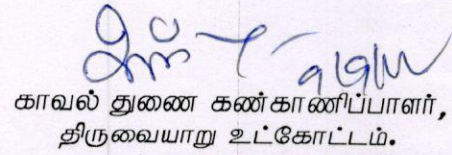 காவல் துணை கண்காணிப்பாளர்,
திருவையாறு உட்கோட்டம்.